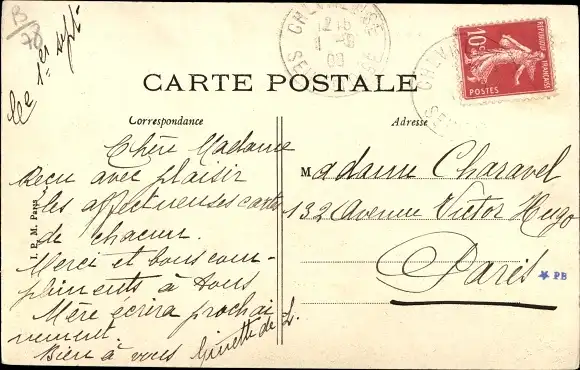 B/78
le 1er sept.
CHEVREUSE
12 15
1 -9
09
10c
REPUBLIQUE FRANÇAISE
POSTES
CARTE POSTALE
Correspondance
Adresse
Chère Madame
Reçu avec plaisir
les affectueuses cartes
de chacun.
Merci et bons com-
pliments à tous
Mère écrira prochai
nement.
Bien à vous Ginette de L.
I. P. M. Paris
Madame Charavel
132 Avenue Victor Hugo
Paris
PB